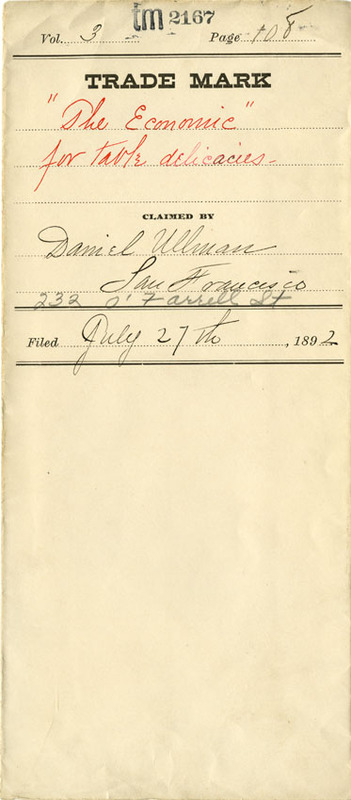 tm 2167
Vol. 3 Page 108
TRADE MARK
"The Economic"
for table delicacies-
CLAIMED BY
Daniel Ullman
San Francisco
232 O'Farrell St
Filed July 27th, 1892